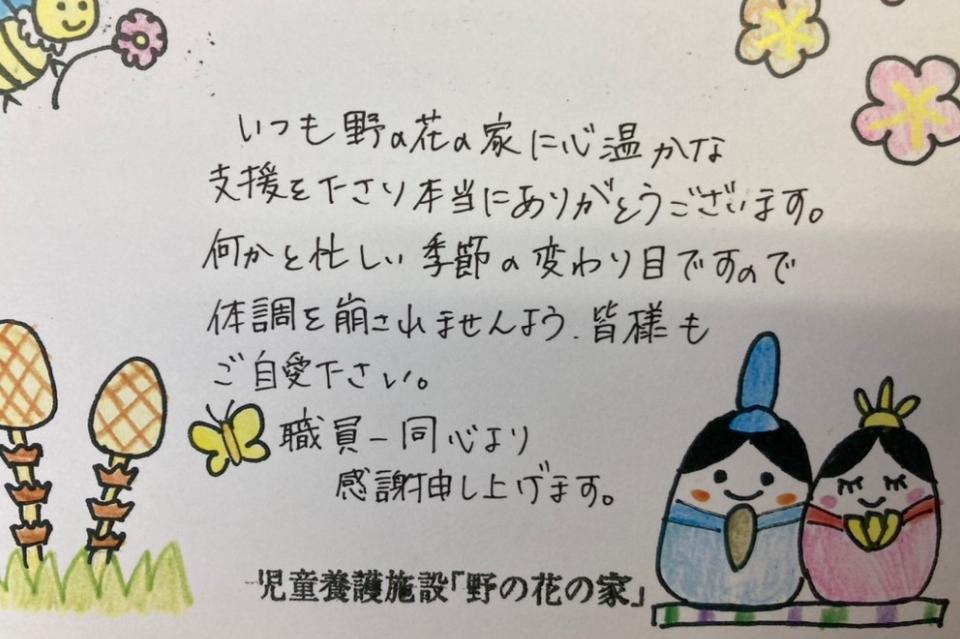 いつも野の花の家に心温かな
支援を下さり本当にありがとうございます。
何かと忙しい季節の変わり目ですので
体調を崩されませんよう、皆様も
ご自愛下さい。
職員一同心より
感謝申し上げます。
児童養護施設「野の花の家」